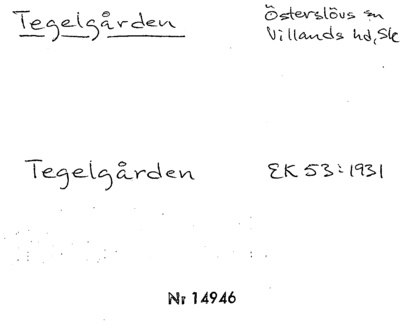 Tegelgården
Österslövs sn
Villands hd, Sk
Tegelgården
EK 53:1931
Nr 14946